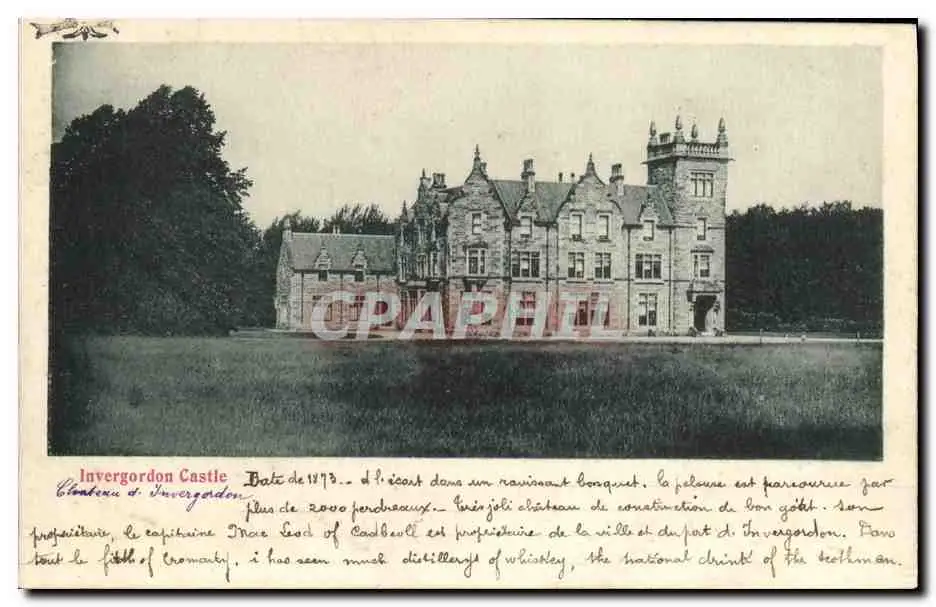 CPArama
Invergordon Castle Date de 1873.- à l'écart dans un ravissant bosquet. la pelouse est parcourue par
Chateau d'Invergordon plus de 2000 perdreaux.- Très joli château de construction de bon goût. son
propriétaire, le capitaine Mac Leod of Cadboll est propriétaire de la ville et du port d'Invergordon. Dans
tout le firth of Cromarty, i has seen much distillerys of whiskey, the national drink of the scothman.